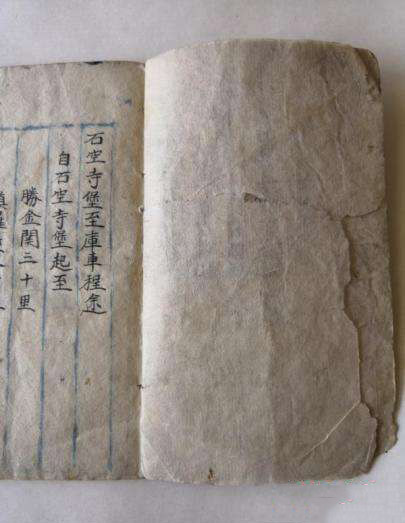 石空寺堡至庫車程途
自石空寺堡起至
勝金関三十里